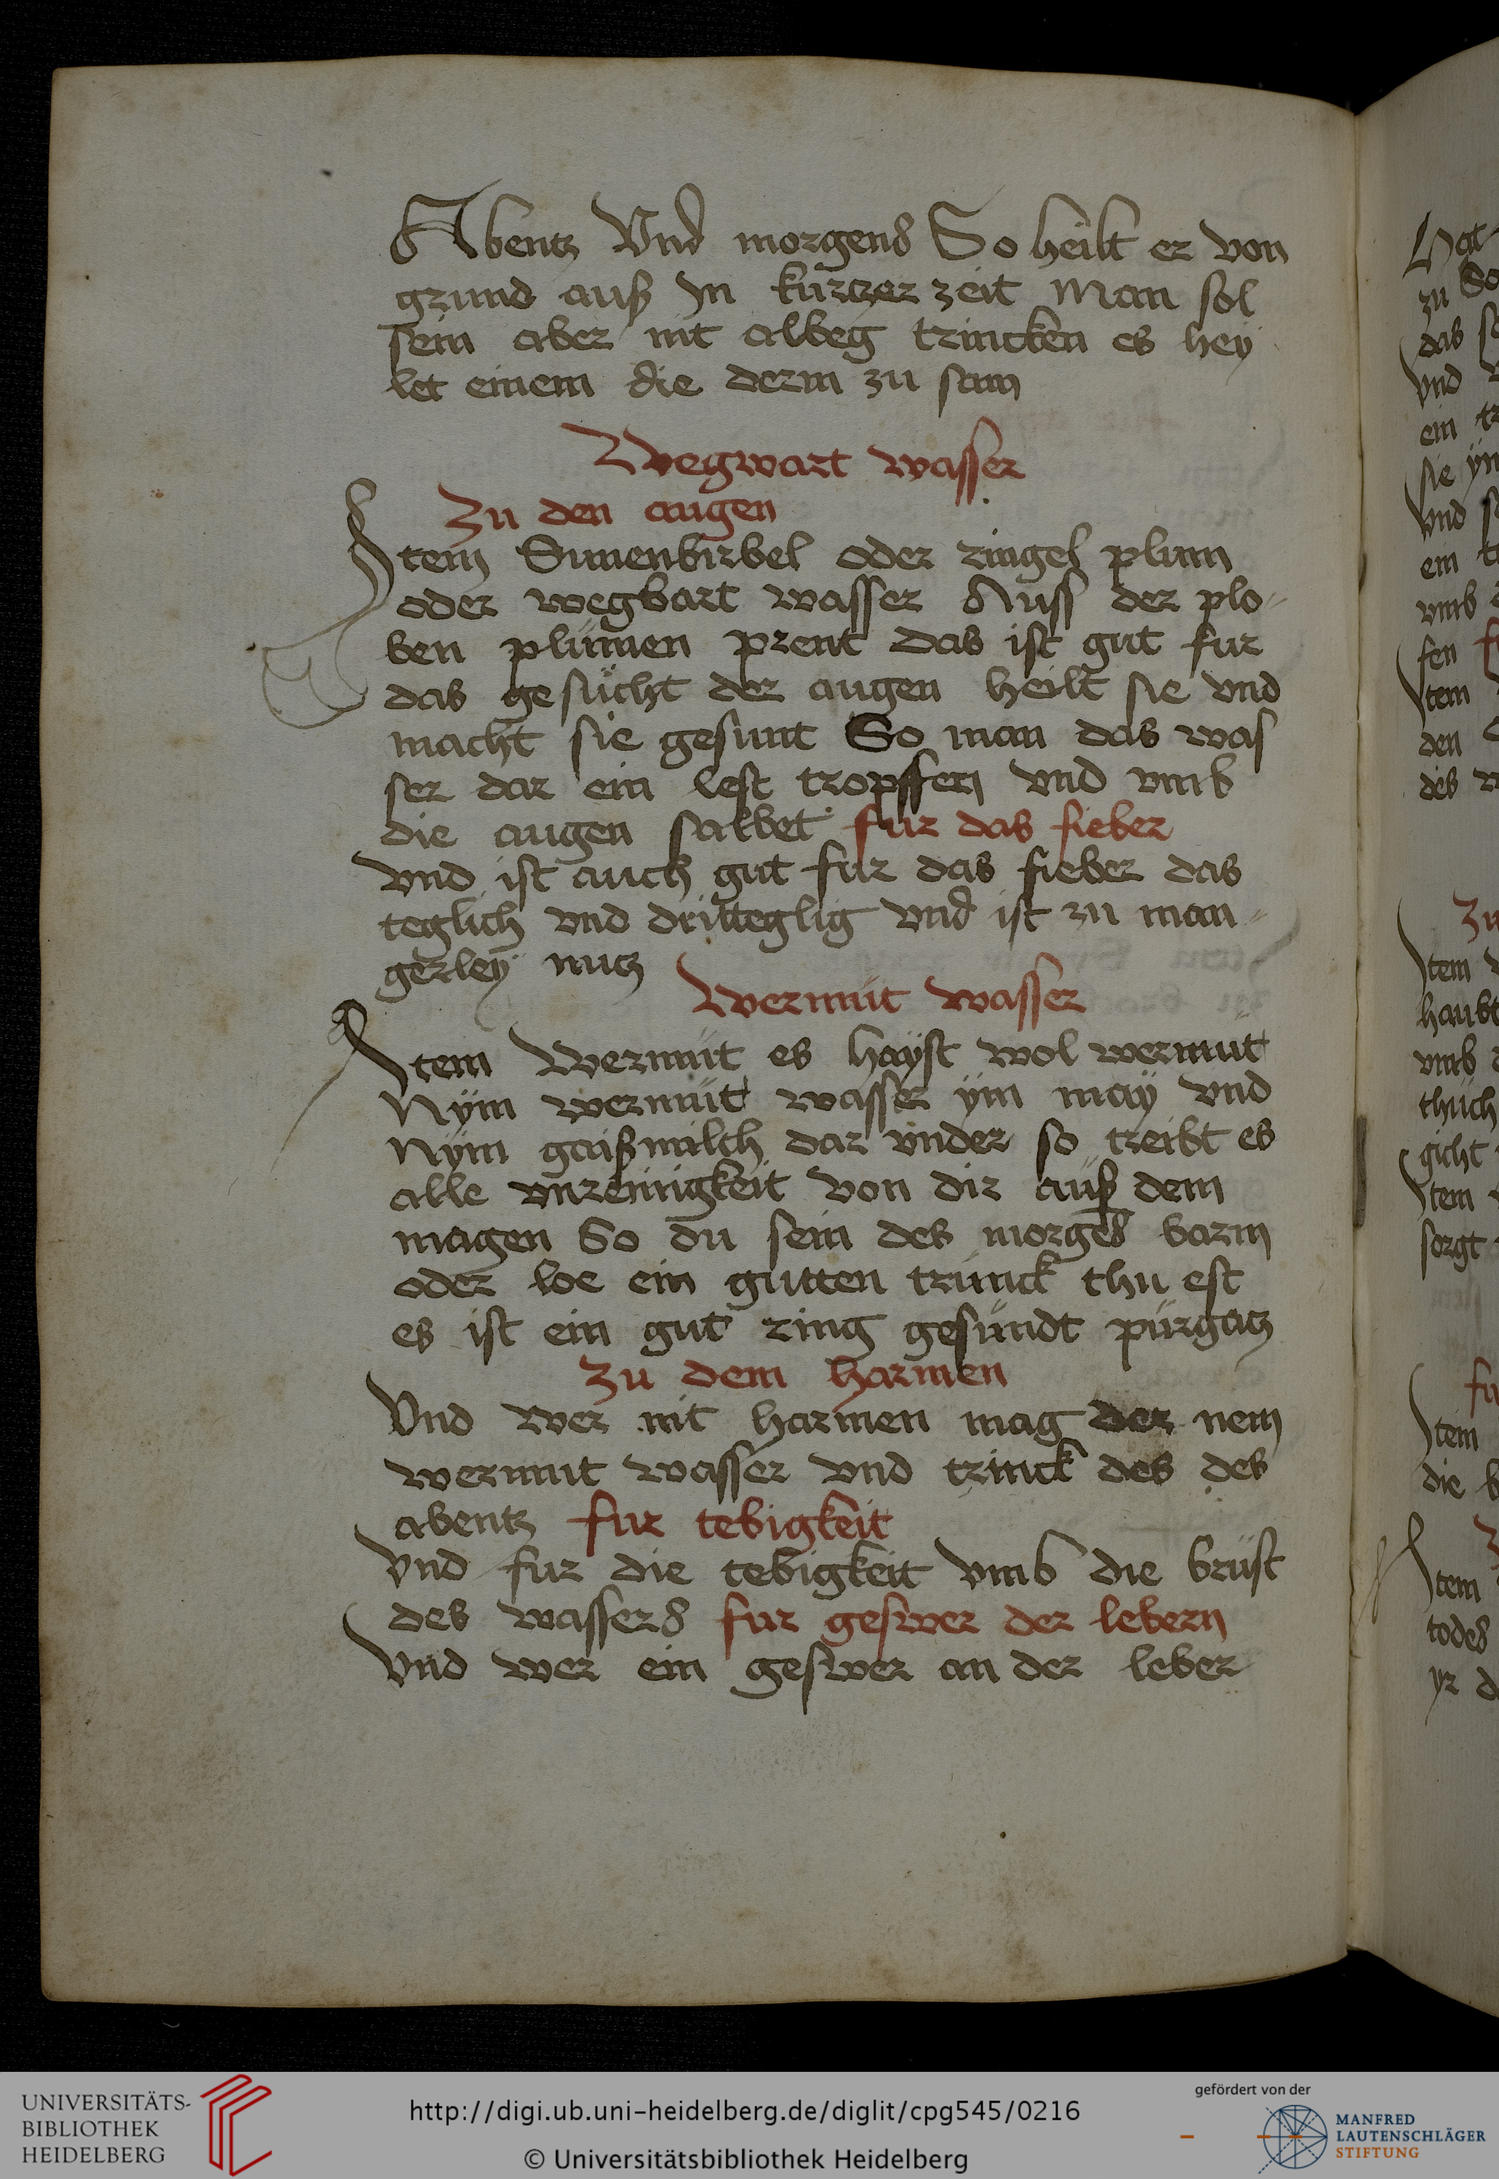 Abentz Vnd morgens So heilt er von
grund auß In kurtzer zeit Man sol
sein aber nit albeg trincken es hey
let einem die derm zu sam
Wegwart wasser
Zu den augen
Item Sunenbirbel oder ringel plum
oder wegbart wasser Auss der plo-
ben plümen prent das ist gut fur
das gesücht der augen heilt sie vnd
macht sie gesunt So man das was
ser dar ein lest tropffen vnd vmb
die augen salbet fur das fieber
vnd ist auch gut fur das fieber das
teglich vnd dritteglig vnd ist zu man-
gerley nutz
Wermüt wasser
Item Wermüt es hayst wol wermüt
Nym wermüt wasser ym may vnd
Nym gaißmilch dar vnder so treibt es
alle vnreinigkeit von dir auß dem
magen So du sein des morges barm
oder loe ein gutten trunck thu est
es ist ein gut ring gesundt purgatz
Zu dem harmen
Vnd wer nit harmen mag der nem
wermut wasser vnd trinck des des
abentz fur tebigkeit
Vnd fur die tebigkeit vmb die brüst
des wassers fur geswer der lebern
Vnd wer ein geswer an der leber
zu So
das
vnd
ein
sie
vnd
em
vmb
fen
Item
den
des
Zu
Item
haubt
vmb
thuch
gicht
Item
sorgt
fu
Item
die
Item
todes
yr
UNIVERSITÄTS-
BIBLIOTHEK
HEIDELBERG
http://digi.ub.uni-heidelberg.de/diglit/cpg545/0216
© Universitätsbibliothek Heidelberg
gefördert von der
MANFRED
LAUTENSCHLÄGER
STIFTUNG